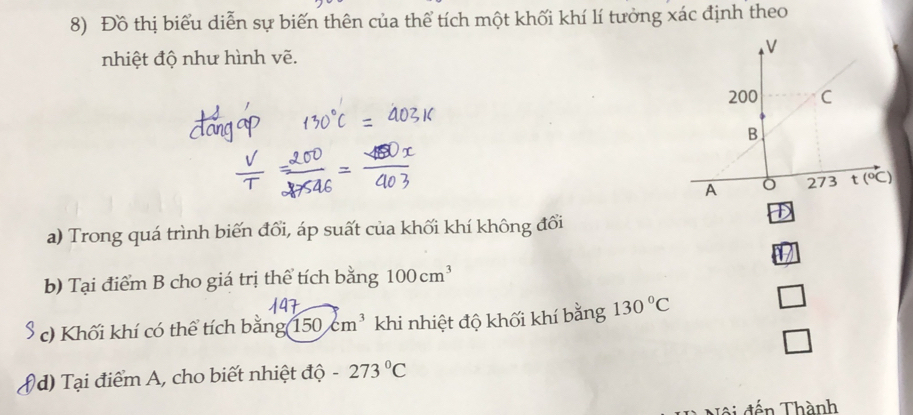 8) Đồ thị biểu diễn sự biến thên của thể tích một khối khí lí tưởng xác định theo
nhiệt độ như hình vẽ.
V
200
C
B
A
O
273
t (⁰C)
đẳng áp 130°C = 403K
V/T = 200/546 = x/403
a) Trong quá trình biến đổi, áp suất của khối khí không đổi
Đ
b) Tại điểm B cho giá trị thể tích bằng 100cm³
Đ
147
S c) Khối khí có thể tích bằng 150 cm³ khi nhiệt độ khối khí bằng 130 ⁰C
Đ d) Tại điểm A, cho biết nhiệt độ - 273 ⁰C
Nội đến Thành